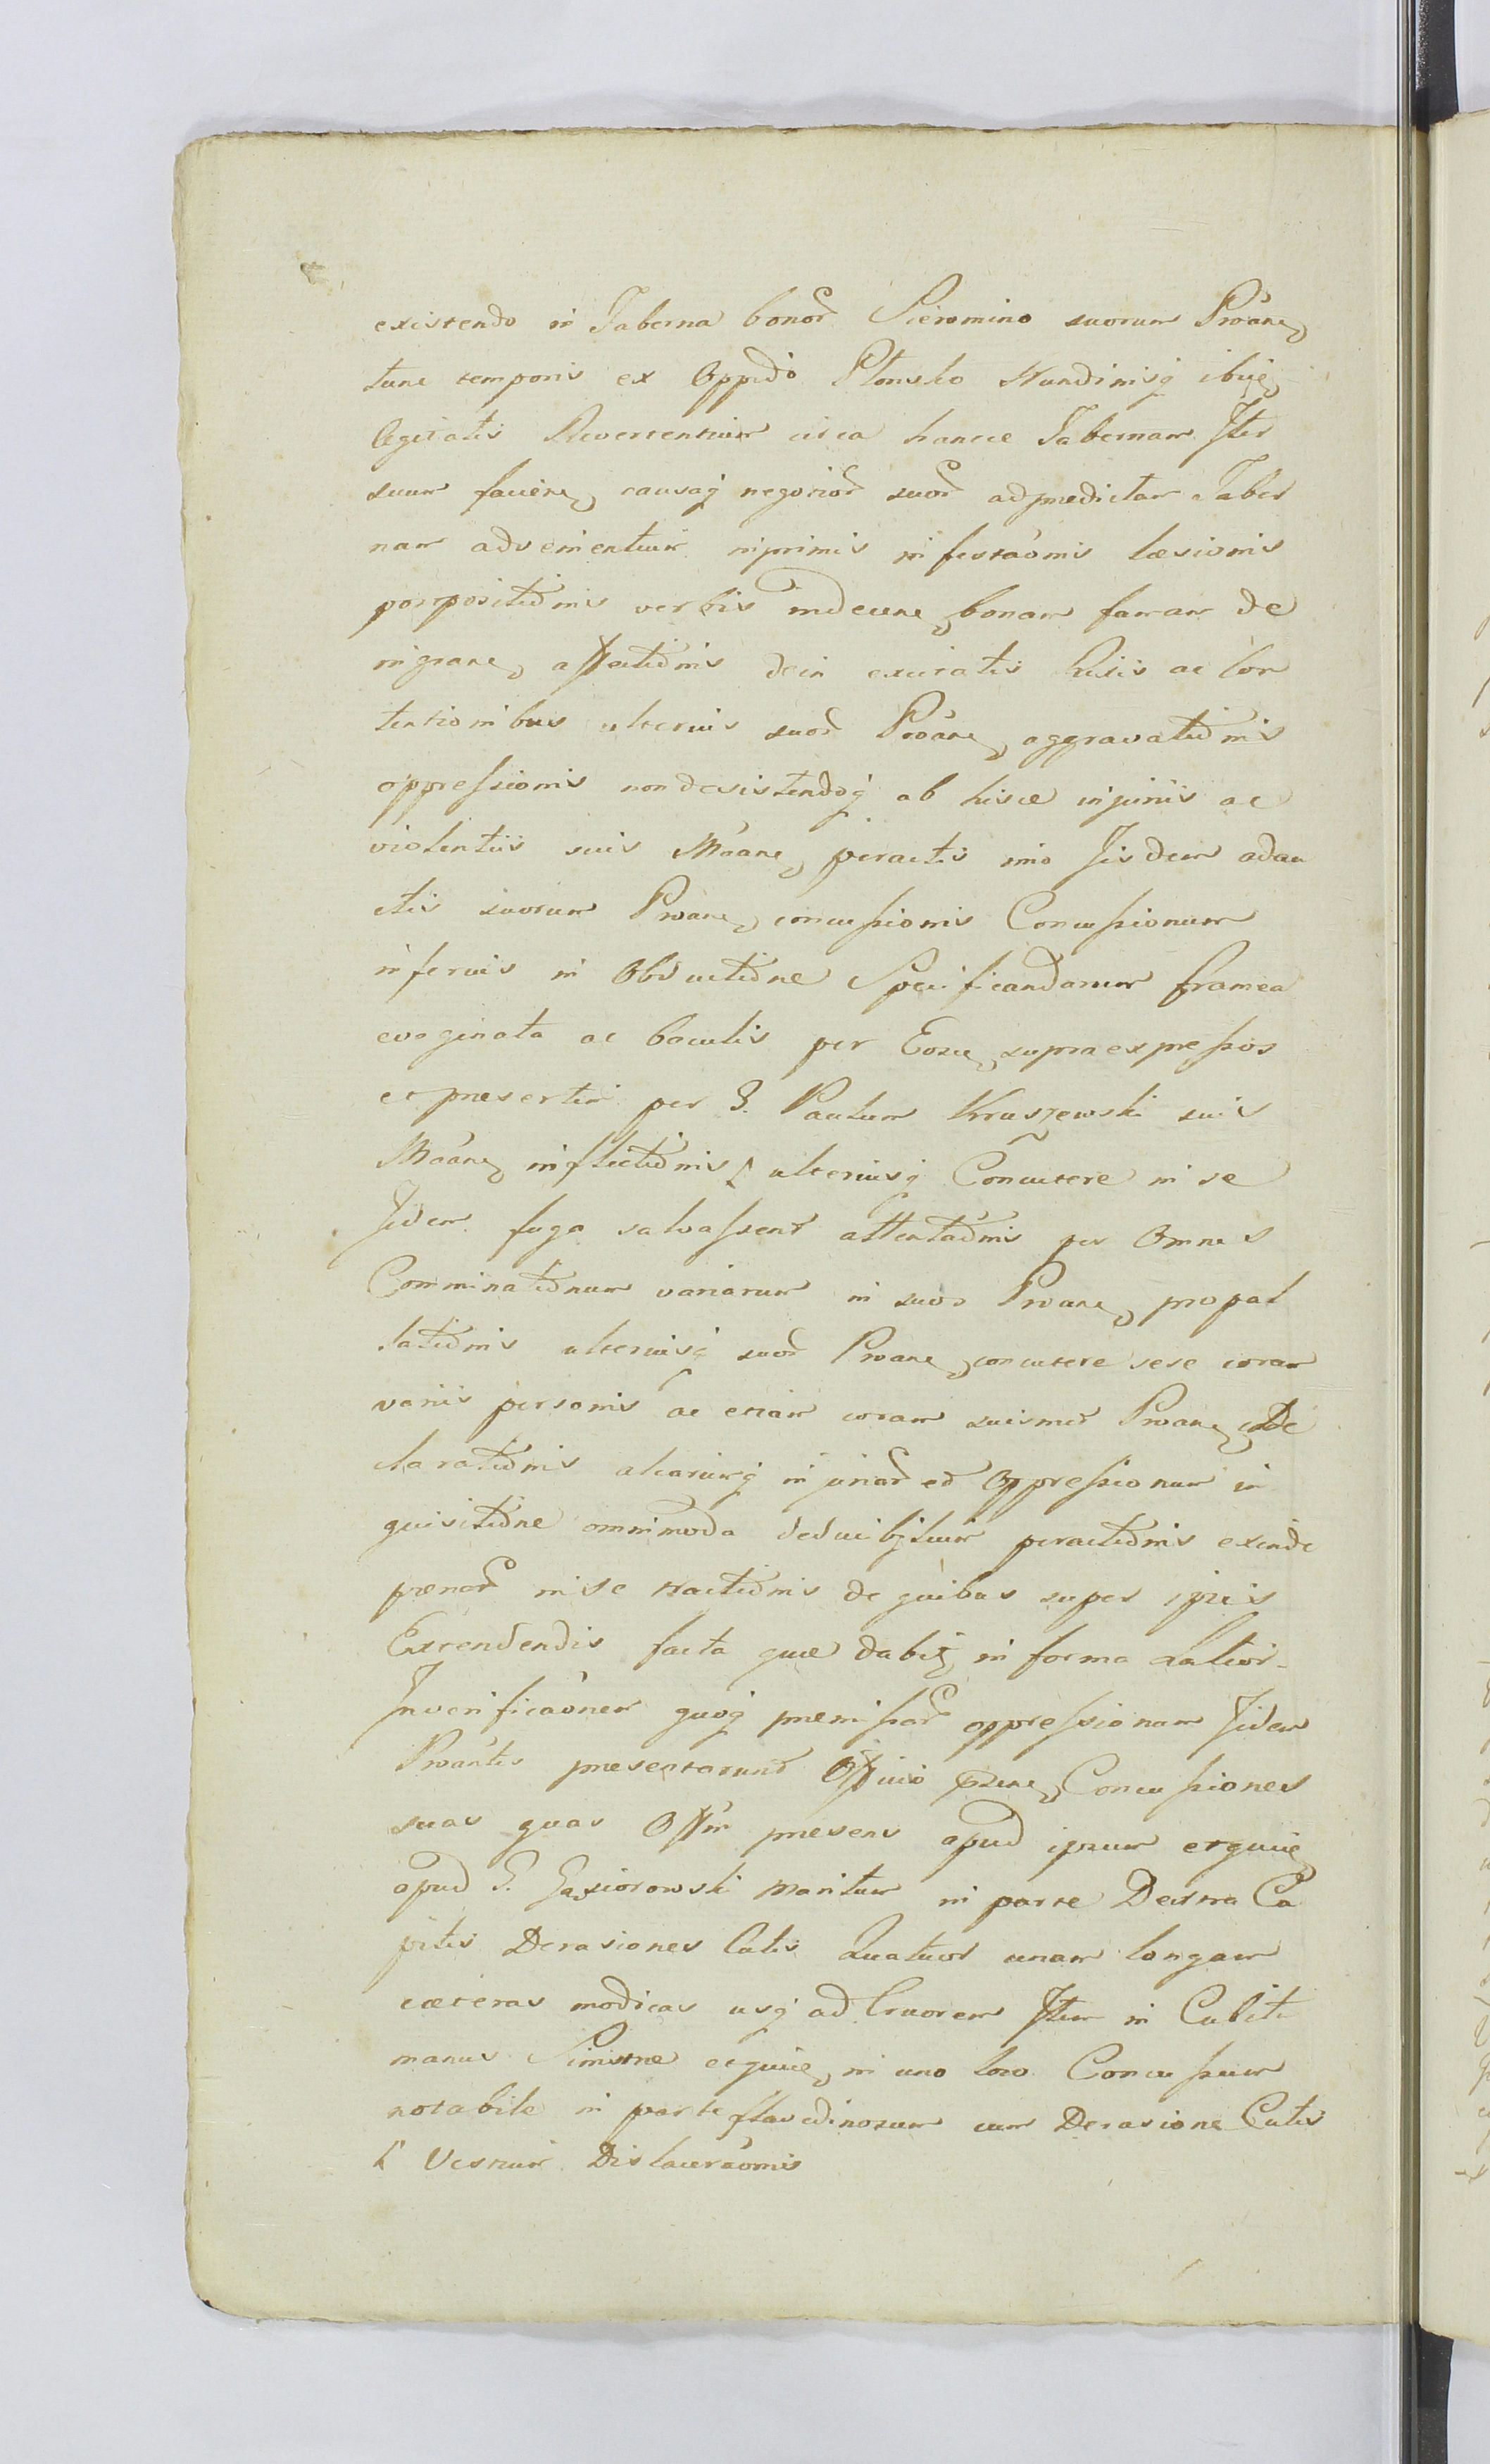 existendo in Taberna bonor Sieromino suorum Proane
tunc temporis ex Oppido Plonsko Nundinisq ibiq
Agitatis Revertentium circa hancce Tabernam Iter
suum facien causaq negotior suor ad predictam Taber
nam advenientium inprimis infestaonis læsionis
postpositionis verbis indecen bonam famam de
nigran affectionis dein excitatis Rixis ac Con
tentionibus ulterius suor Proane aggravationis
oppressionis non desistendoq ab hisce injuriis ac
violentiis suis Moane peractis imo Iisdem adau
ctis suorum Proane concussionis Concussionum
inferius in Obductione Specificandarum framea
evaginata ac baculis per Eosce supraexpressos
et presertim per G. Paulum Kruszewski suis
Moane inflictionis ulteriusq Concutere ni se
Iidem fuga salvassent attentaonis per Omnes
Comminationum variarum in suos Proane propal
lationis ulteriusq suor Proane concutere sese coram
variis personis ac etiam coram suismet Proane De
clarationis aliarumq injuriar ed Oppressionum in
quisitione omnimoda deducibilium peractionis exinde
pœnar in se tractionis de quibus super ipsis
Extendendis facta que dabit in forma Latior
In verificaonem quoq premissar oppressionum Iidem
Proantes presentarunt Officio psene Concussiones
suas quas Offm presens apud ipsum
apud G. Gąsiorowski Maritum in parte Dextra Ca
pitis Derasiones Cutis Quatuor unam longam
cæteras modicas usq ad Cruorem Item in Cubiti
manus Sinistræ in uno loco Concussum
notabile in parte flavedinosum cum Derasione Cutis
Vestium Dislaceraonis